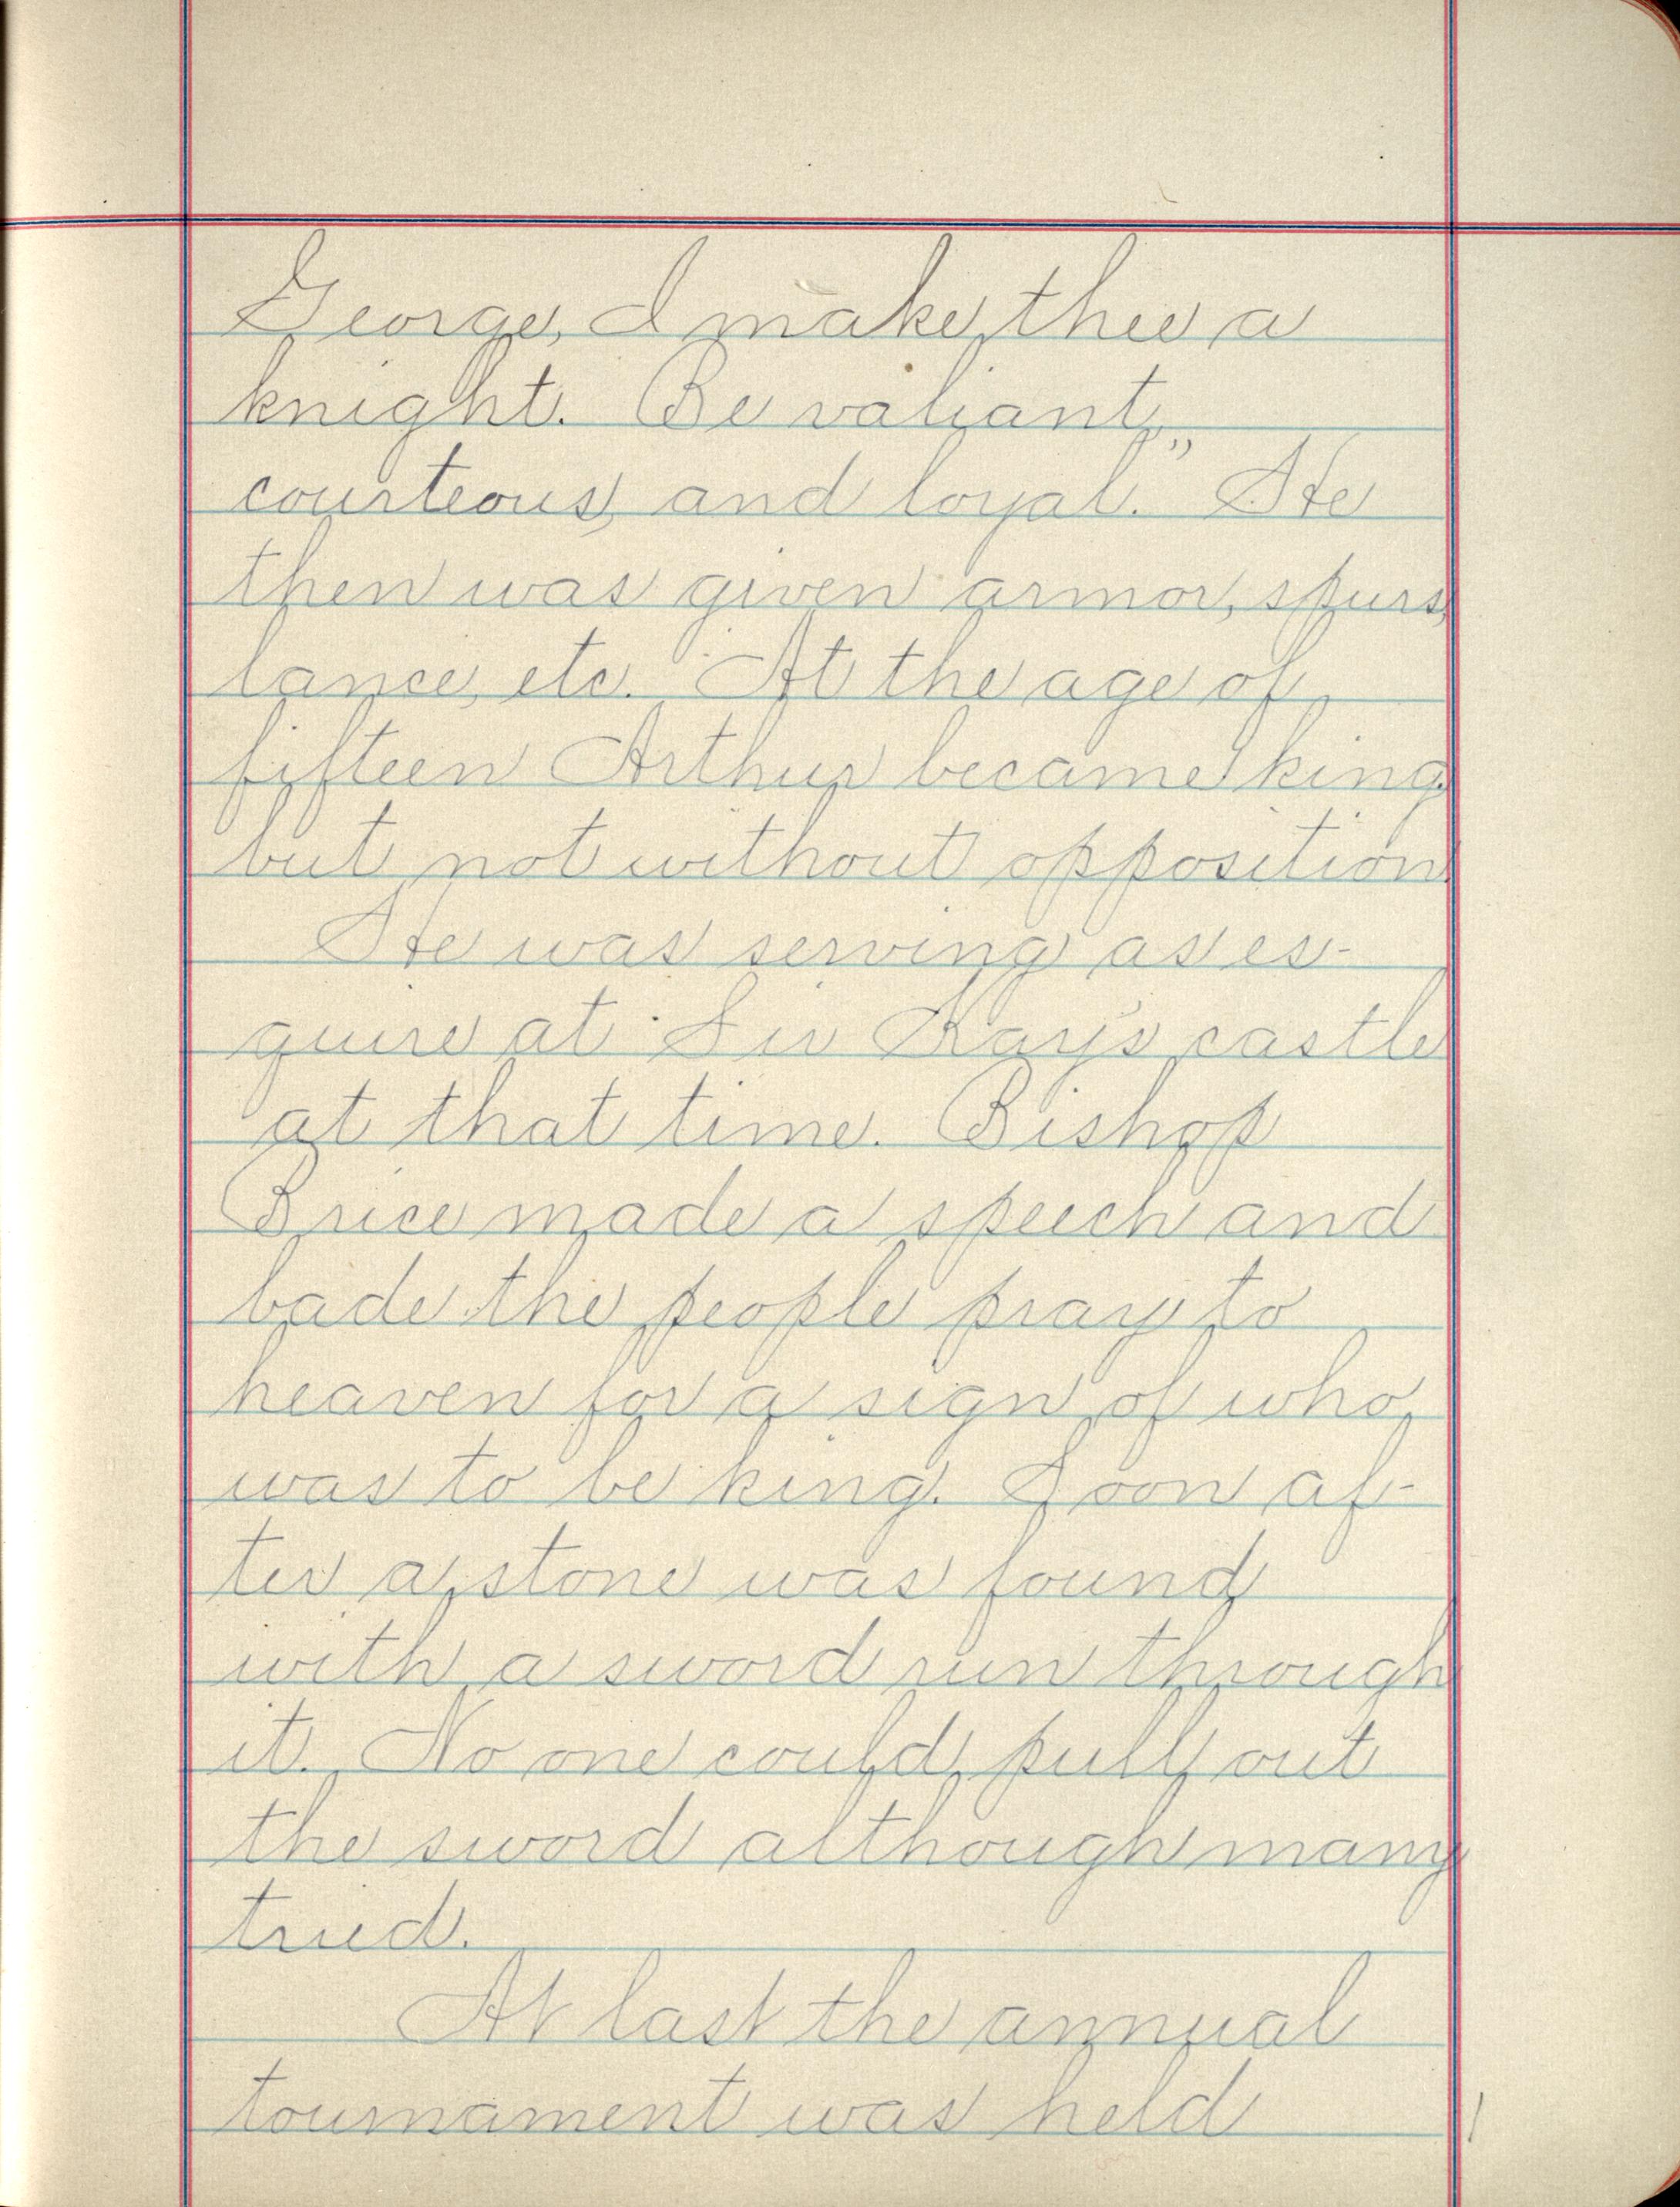 George, I make thee a
knight. Be valiant,
courteous, and loyal." He
then was given armor, spurs,
lance, etc. At the age of
fifteen Arthur became king,
but not without opposition.
He was serving as es-
quire at Sir Kay's castle
at that time. Bishop
Brice made a speech and
bade the people pray to
heaven for a sign of who
was to be king. Soon af-
ter a stone was found
with a sword run through
it. No one could pull out
the sword although many
tried.
At last the annual
tournament was held